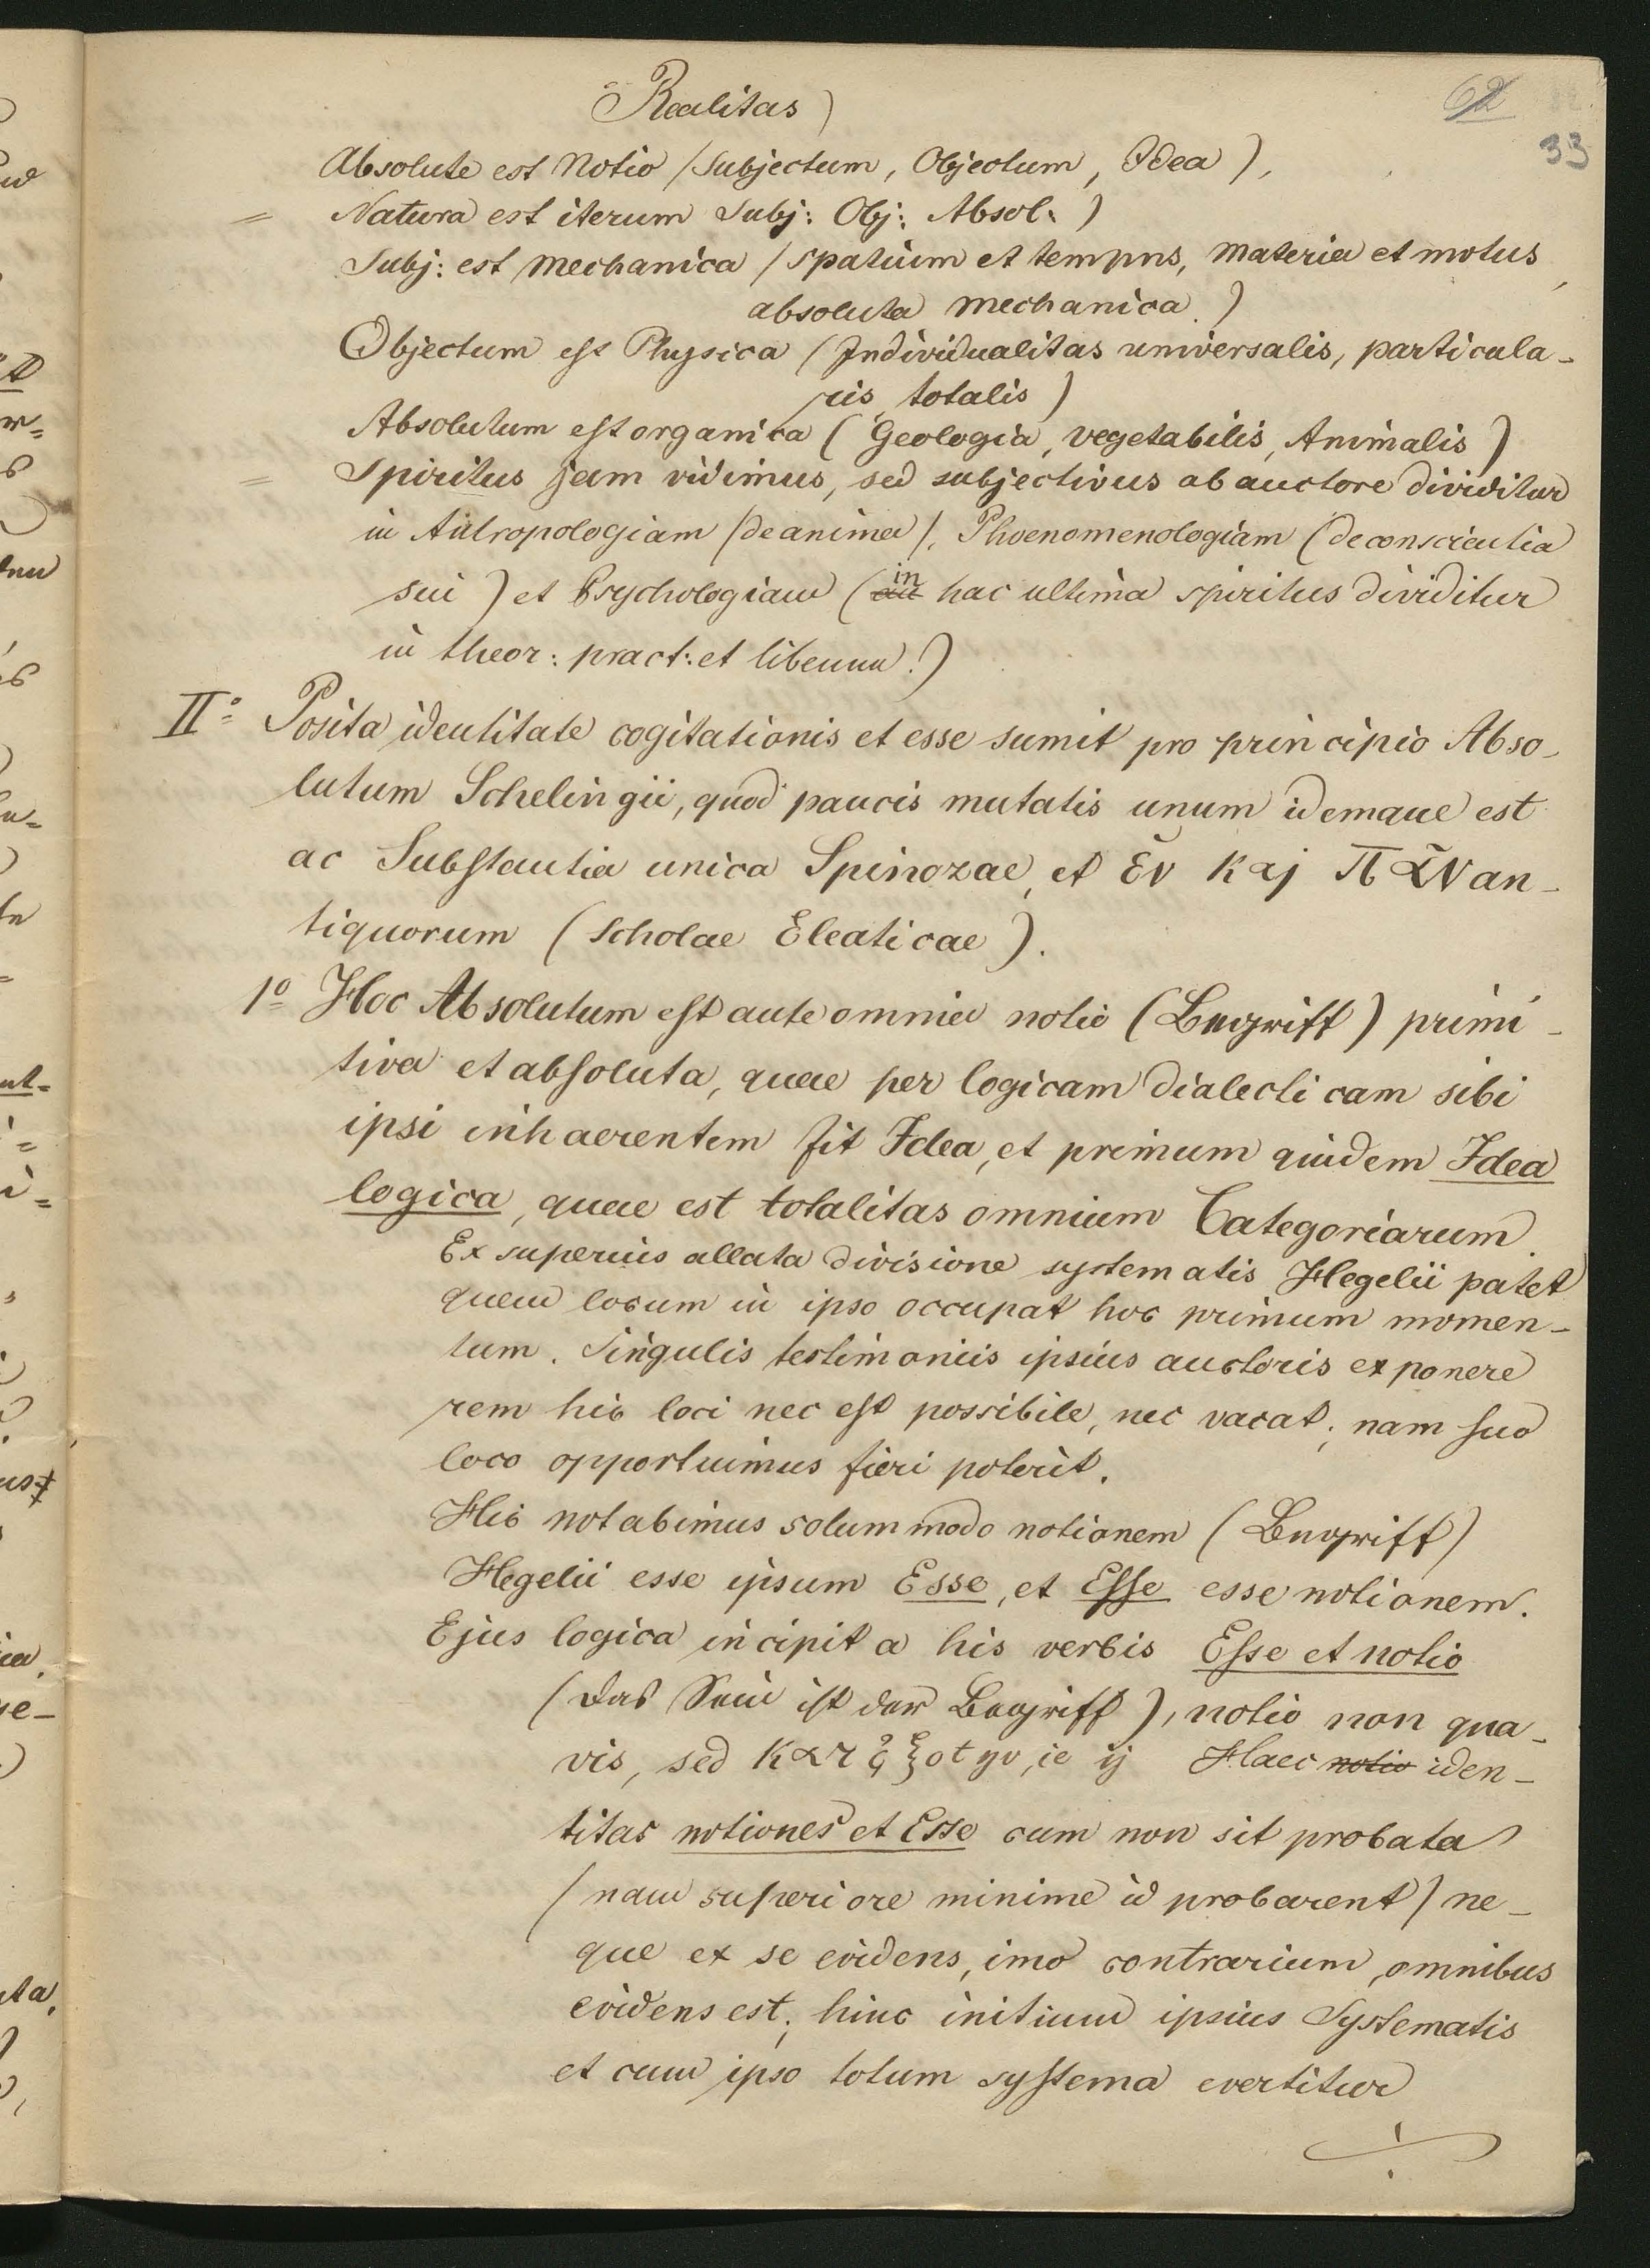 62
33
Realitas)
Absolute est Notio (Subjectum, Objectum, Idea),
= Natura est iterum Subj: Obj: Absol.)
Subj: est Mechanica (spatium et tempus, materia et motus,
absoluta mechanica.)
Objectum est Physica (Individualitas universalis, particula-
ris, totalis)
Absolutum est organica (Geologia, vegetabilis, Animalis)
= Spiritus jam vidimus, sed subjectivus ab auctore dividitur
in Antropologiam (de anima), Phoenomenologiam (de conscientia
sui) et Psychologiam (in hac ultima spiritus dividitur
in theor: pract: et liberum.)
II° Posita identitate cogitationis et esse sumit pro principio Abso-
lutum Schelingii, quod paucis mutatis unum idemque est
ac Substantia unica Spinozae, et Ἐν καj πᾶν an-
tiquorum (Scholae Eleaticae).
1° Hoc Absolutum est ante omnia notio (Begriff) primi-
tiva et absoluta, quae per logicam dialecticam sibi
ipsi inhaerentem fit Idea, et primum quidem Idea
logica, quae est totalitas omnium Categoriarum.
Ex superius allata divisione systematis Hegelii patet
quem locum in ipso occupat hoc primum momen-
tum. Singulis testimoniis ipsius auctoris exponere
rem hic loci nec est possibile, nec vacat; nam suo
loco opportuimus fieri poterit.
Hic notabimus solummodo notionem (Begriff)
Hegelii esse ipsum Esse, et Esse esse notionem.
Ejus logica incipit a his verbis Esse et notio
(das Sein ist der Begriff), notio non qua-
vis, sed Haec notio iden-
titas notiones et Esse cum non sit probata
(nam superiore minime id probarent) ne-
que ex se evidens, imo contrarium, omnibus
evidens est; hinc initium ipsius Systematis
et cum ipso totum systema evertitur